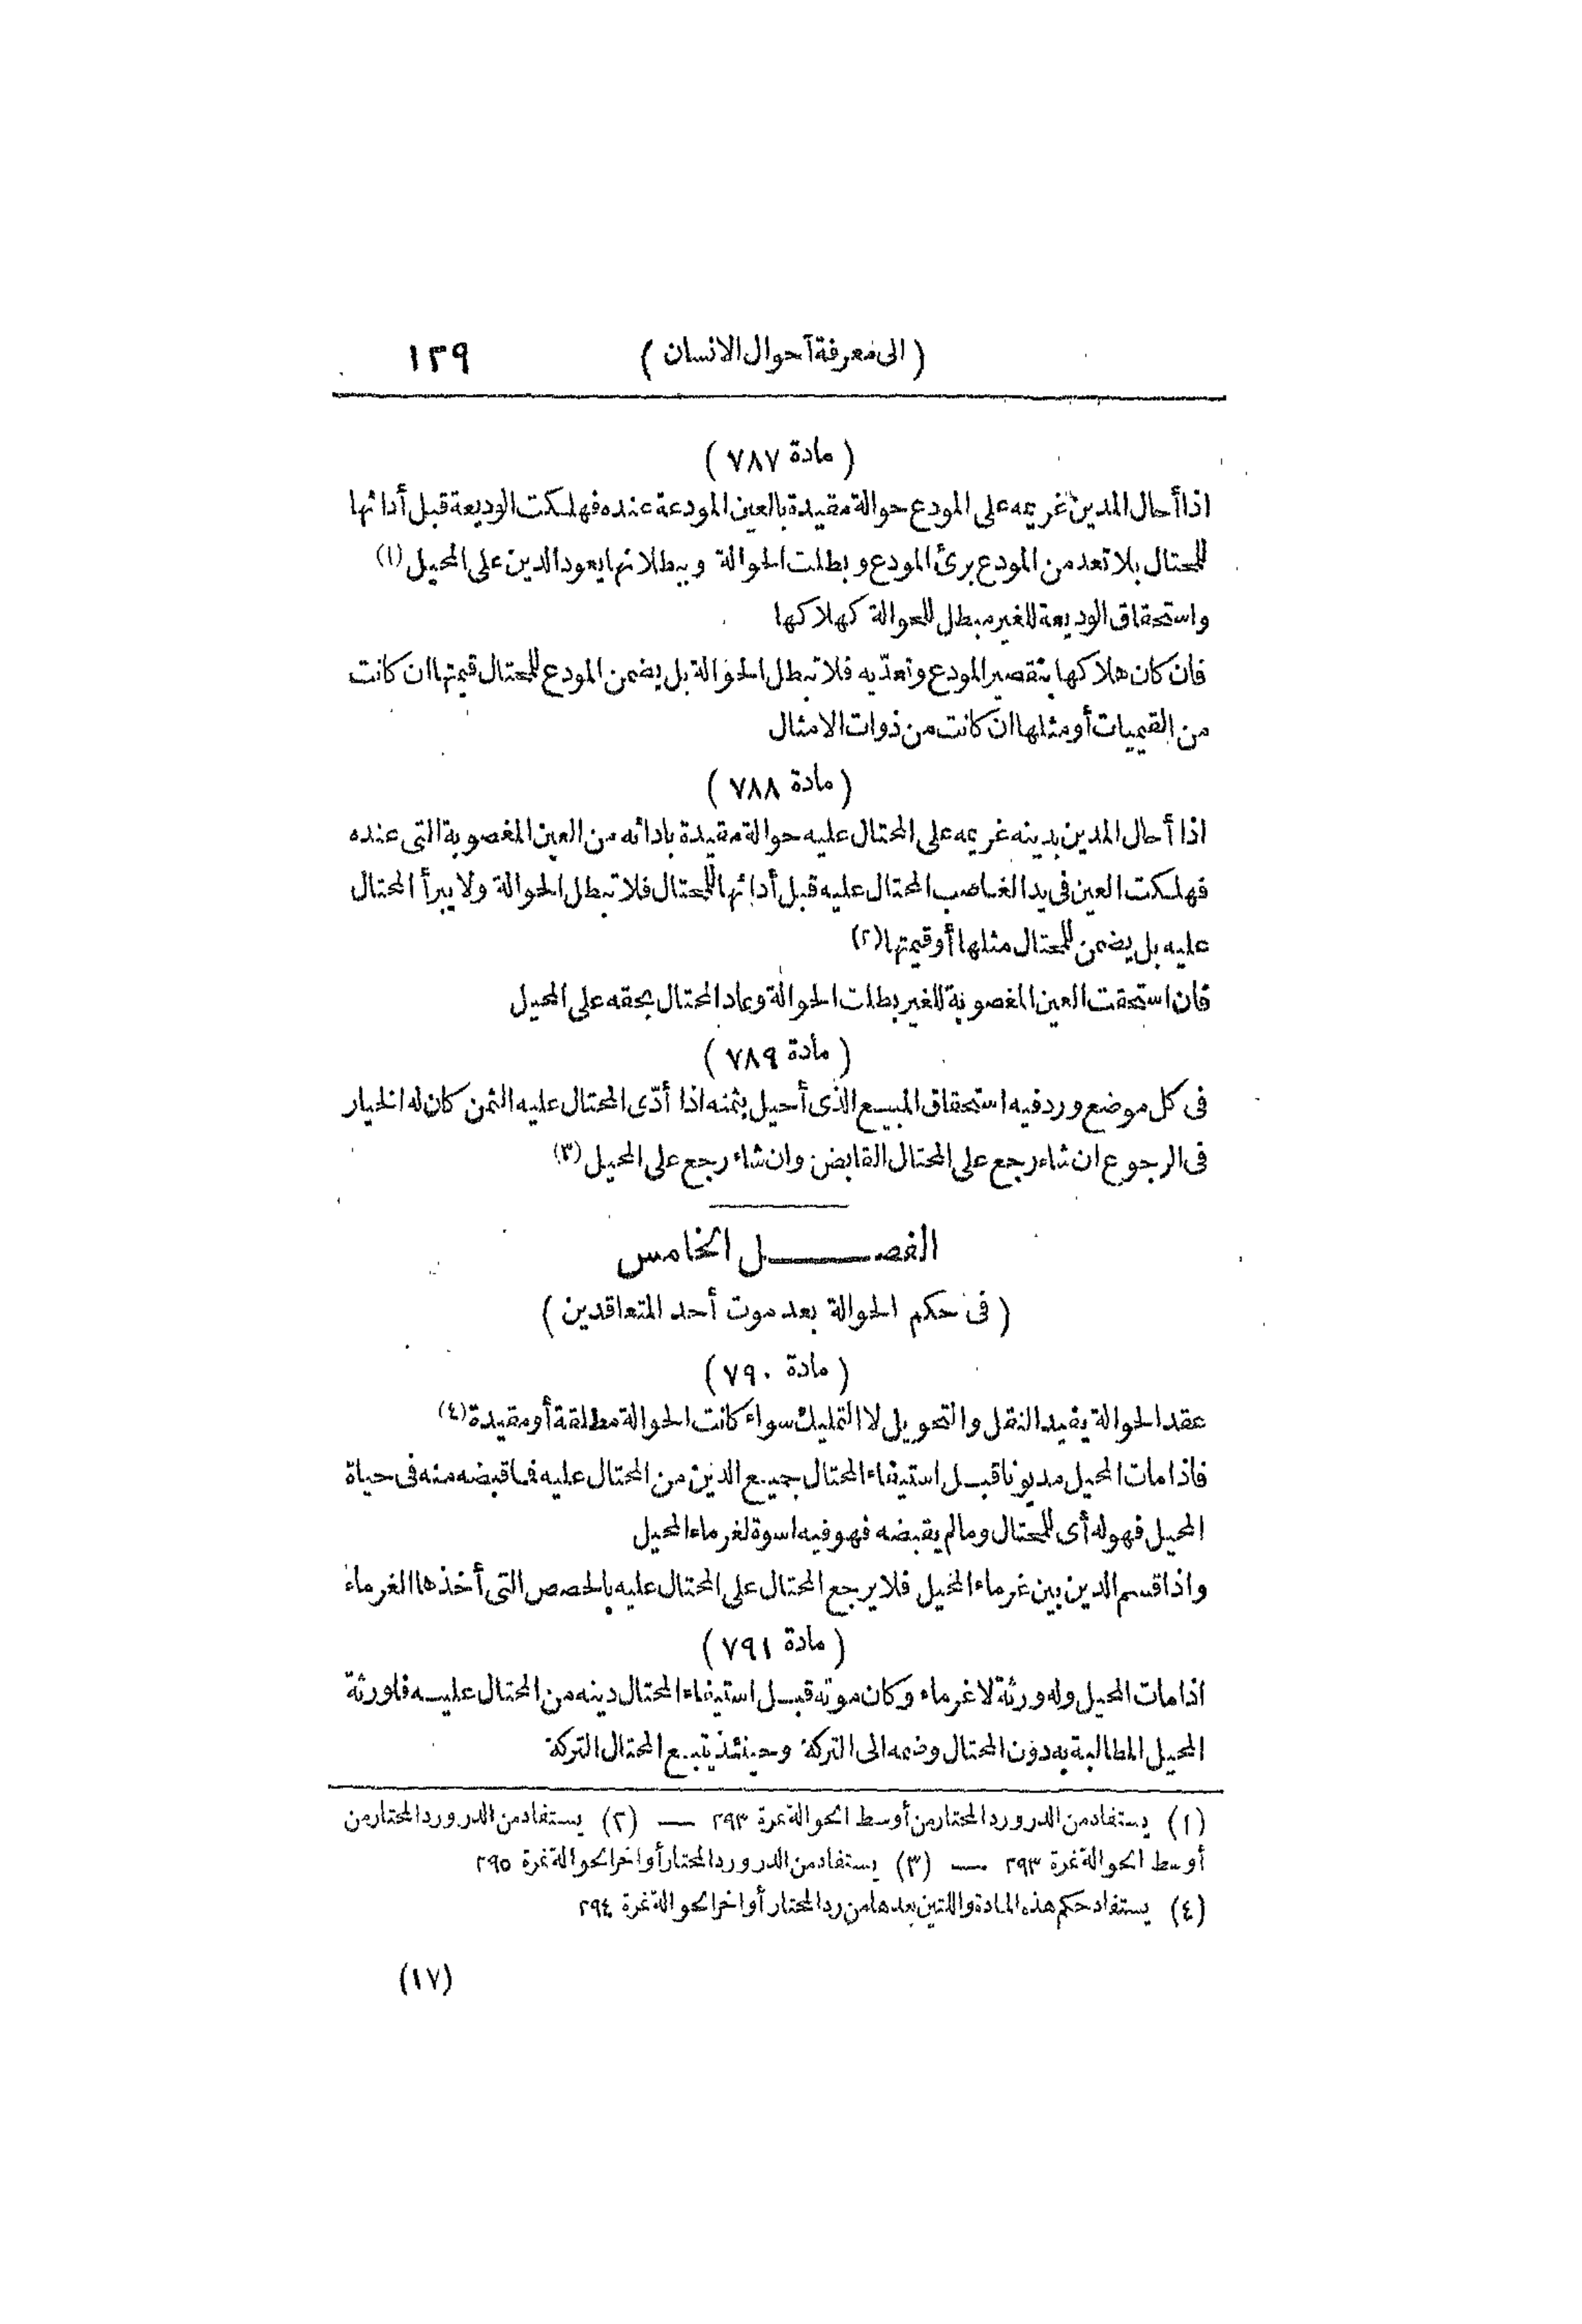 ( الى معرفة أحوال الانسان ) ١٢٩
( مادة ٧٨٧ )
اذا أحال المدين غريمه على المودع حوالة مقيدة بالعين المودعة عنده فهلكت الوديعة قبل أدائها
للمحتال بلا تعد من المودع برئ المودع و بطلت الحوالة وببطلانها يعود الدين على المحيل (١)
واستحقاق الوديعة للغير مبطل للحوالة كهلاكها
فان كان هلاكها بتقصير المودع وتعدّيه فلا تبطل الحوالة بل يضمن المودع للمحتال قيمتها ان كانت
من القيميات أو مثلها ان كانت من ذوات الامثال
( مادة ٧٨٨ )
اذا أحال المدين بدينه غريمه على المحتال عليه حوالة مقيدة بادائه من العين المغصوبة التى عنده
فهلكت العين فى يد الغاصب المحتال عليه قبل أدائها للمحتال فلا تبطل الحوالة ولا يبرأ المحتال
عليه بل يضمن للمحتال مثلها أو قيمتها (٢)
فان استحقت العين المغصوبة للغير بطلت الحوالة وعاد المحتال بحقه على المحيل
( مادة ٧٨٩ )
فى كل موضع ورد فيه استحقاق المبيع الذى أحيل بثمنه اذا أدّى المحتال عليه الثمن كان له الخيار
فى الرجوع ان شاء رجع على المحتال القابض وان شاء رجع على المحيل (٣)
الفصل الخامس
( فى حكم الحوالة بعد موت أحد المتعاقدين )
( مادة ٧٩٠ )
عقد الحوالة يفيد النقل والتحويل لا التمليك سواء كانت الحوالة مطلقة أو مقيدة (٤)
فاذا مات المحيل مديونا قبل استيفاء المحتال جميع الدين من المحتال عليه فما قبضه منه فى حياة
المحيل فهو له أى للمحتال وما لم يقبضه فهو فيه اسوة لغرماء المحيل
واذا قسم الدين بين غرماء المحيل فلا يرجع المحتال على المحتال عليه بالحصص التى أخذها الغرماء
( مادة ٧٩١ )
اذا مات المحيل وله ورثة لا غرماء وكان موته قبل استيفاء المحتال دينه من المحتال عليه فلورثة
المحيل المطالبة به دون المحتال وضمه الى التركة وحينئذ يتبع المحتال التركة
(١) يستفاد من الدر ورد المحتار من أوسط الحوالة نمرة ٢٩٣ — (٢) يستفاد من الدر ورد المحتار من
أوسط الحوالة نمرة ٢٩٣ — (٣) يستفاد من الدر ورد المحتار أواخر الحوالة نمرة ٢٩٥
(٤) يستفاد حكم هذه المادة واللتين بعدها من رد المحتار أواخر الحوالة نمرة ٢٩٤
(١٧)